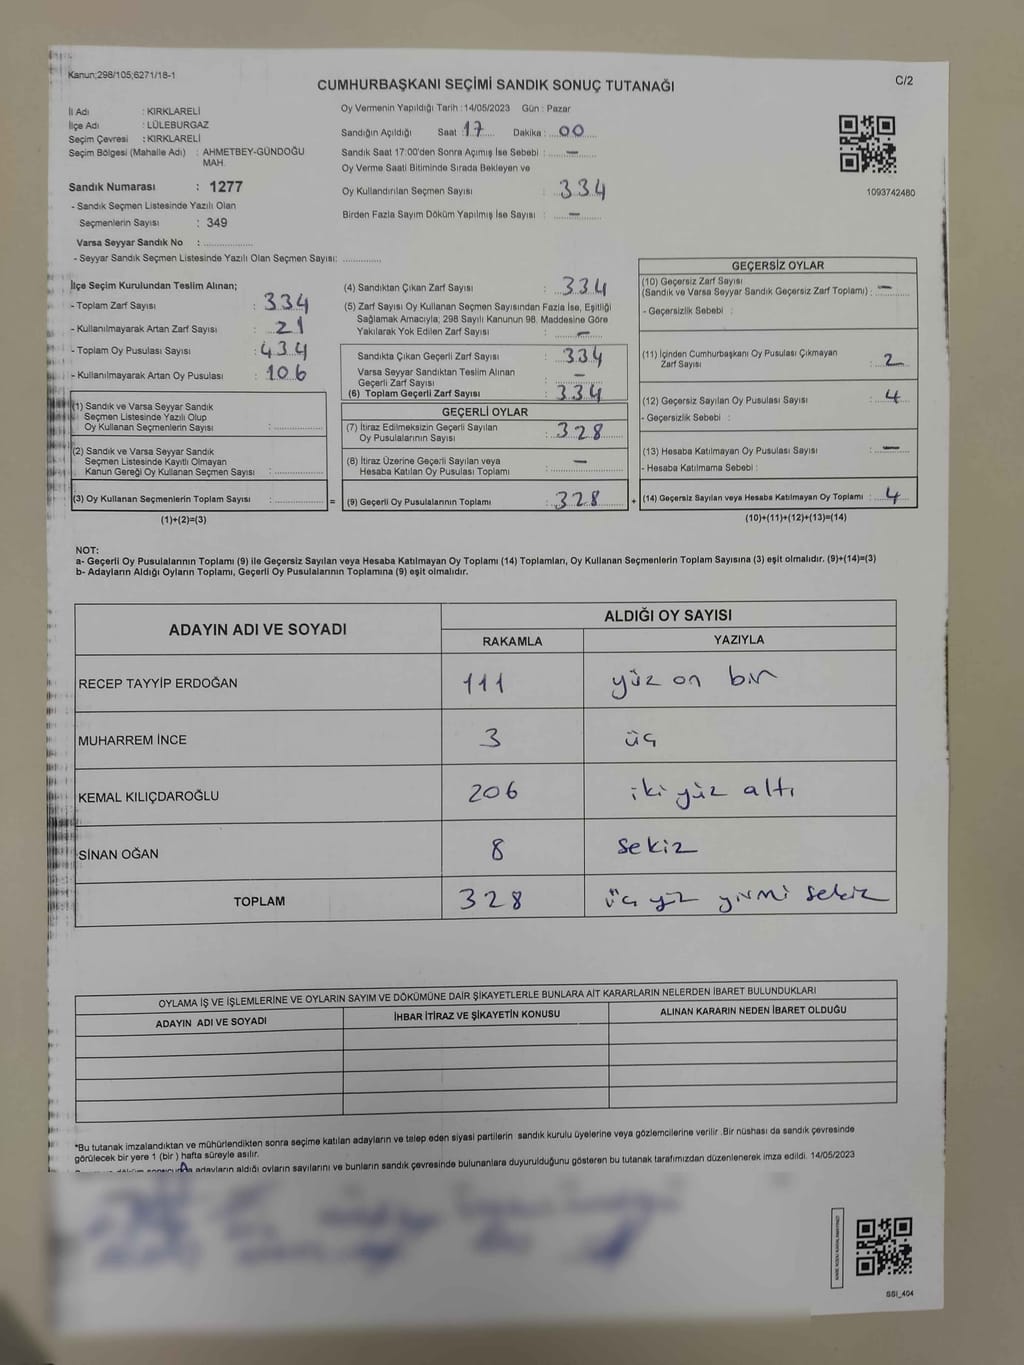 Kanun;298/105;6271/18-1
C/2
CUMHURBAŞKANI SEÇİMİ SANDIK SONUÇ TUTANAĞI
İl Adı : KIRKLARELİ
İlçe Adı : LÜLEBURGAZ
Seçim Çevresi : KIRKLARELİ
Seçim Bölgesi (Mahalle Adı) : AHMETBEY-GÜNDOĞU
MAH.
Sandık Numarası : 1277
- Sandık Seçmen Listesinde Yazılı Olan
Seçmenlerin Sayısı : 349
Varsa Seyyar Sandık No : ..............
- Seyyar Sandık Seçmen Listesinde Yazılı Olan Seçmen Sayısı: ............
Oy Vermenin Yapıldığı Tarih :14/05/2023 Gün : Pazar
Sandığın Açıldığı Saat : 17 Dakika : 00
Sandık Saat 17:00'den Sonra Açımış İse Sebebi : —
Oy Verme Saati Bitiminde Sırada Bekleyen ve
Oy Kullandırılan Seçmen Sayısı : 334
Birden Fazla Sayım Döküm Yapılmış İse Sayısı : —
1093742480
İlçe Seçim Kurulundan Teslim Alınan;
- Toplam Zarf Sayısı : 334
- Kullanılmayarak Artan Zarf Sayısı : 21
- Toplam Oy Pusulası Sayısı : 434
- Kullanılmayarak Artan Oy Pusulası : 106
(1) Sandık ve Varsa Seyyar Sandık
Seçmen Listesinde Yazılı Olup
Oy Kullanan Seçmenlerin Sayısı : ..............
(2) Sandık ve Varsa Seyyar Sandık
Seçmen Listesinde Kayıtlı Olmayan
Kanun Gereği Oy Kullanan Seçmen Sayısı : ..............
(3) Oy Kullanan Seçmenlerin Toplam Sayısı : .............. =
(1)+(2)=(3)
(4) Sandıktan Çıkan Zarf Sayısı : 334
(5) Zarf Sayısı Oy Kullanan Seçmen Sayısından Fazla İse, Eşitliği
Sağlamak Amacıyla; 298 Sayılı Kanunun 98. Maddesine Göre
Yakılarak Yok Edilen Zarf Sayısı : —
Sandıkta Çıkan Geçerli Zarf Sayısı : 334
Varsa Seyyar Sandıktan Teslim Alınan
Geçerli Zarf Sayısı : —
(6) Toplam Geçerli Zarf Sayısı : 334
GEÇERLİ OYLAR
(7) İtiraz Edilmeksizin Geçerli Sayılan
Oy Pusulalarının Sayısı : 328
(8) İtiraz Üzerine Geçerli Sayılan veya
Hesaba Katılan Oy Pusulaları Toplamı : —
(9) Geçerli Oy Pusulalarının Toplamı : 328 +
GEÇERSİZ OYLAR
(10) Geçersiz Zarf Sayısı
(Sandık ve Varsa Seyyar Sandık Geçersiz Zarf Toplamı) : —
- Geçersizlik Sebebi :
(11) İçinden Cumhurbaşkanı Oy Pusulası Çıkmayan
Zarf Sayısı : 2
(12) Geçersiz Sayılan Oy Pusulası Sayısı : 4
- Geçersizlik Sebebi :
(13) Hesaba Katılmayan Oy Pusulası Sayısı : —
- Hesaba Katılmama Sebebi :
(14) Geçersiz Sayılan veya Hesaba Katılmayan Oy Toplamı : 4
(10)+(11)+(12)+(13)=(14)
NOT:
a- Geçerli Oy Pusulalarının Toplamı (9) ile Geçersiz Sayılan veya Hesaba Katılmayan Oy Toplamı (14) Toplamları, Oy Kullanan Seçmenlerin Toplam Sayısına (3) eşit olmalıdır. (9)+(14)=(3)
b- Adayların Aldığı Oyların Toplamı, Geçerli Oy Pusulalarının Toplamına (9) eşit olmalıdır.
ADAYIN ADI VE SOYADI ALDIĞI OY SAYISI
RAKAMLA YAZIYLA
RECEP TAYYİP ERDOĞAN 111 yüz on bir
MUHARREM İNCE 3 üç
KEMAL KILIÇDAROĞLU 206 iki yüz altı
SİNAN OĞAN 8 sekiz
TOPLAM 328 üç yüz yirmi sekiz
OYLAMA İŞ VE İŞLEMLERİNE VE OYLARIN SAYIM VE DÖKÜMÜNE DAİR ŞİKAYETLERLE BUNLARA AİT KARARLARIN NELERDEN İBARET BULUNDUKLARI
ADAYIN ADI VE SOYADI İHBAR İTİRAZ VE ŞİKAYETİN KONUSU ALINAN KARARIN NEDEN İBARET OLDUĞU
*Bu tutanak imzalandıktan ve mühürlendikten sonra seçime katılan adayların ve talep eden siyasi partilerin sandık kurulu üyelerine veya gözlemcilerine verilir .Bir nüshası da sandık çevresinde
görülecek bir yere 1 (bir ) hafta süreyle asılır.
adayların aldığı oyların sayılarını ve bunların sandık çevresinde bulunanlara duyurulduğunu gösteren bu tutanak tarafımızdan düzenlenerek imza edildi. 14/05/2023
SSI_404